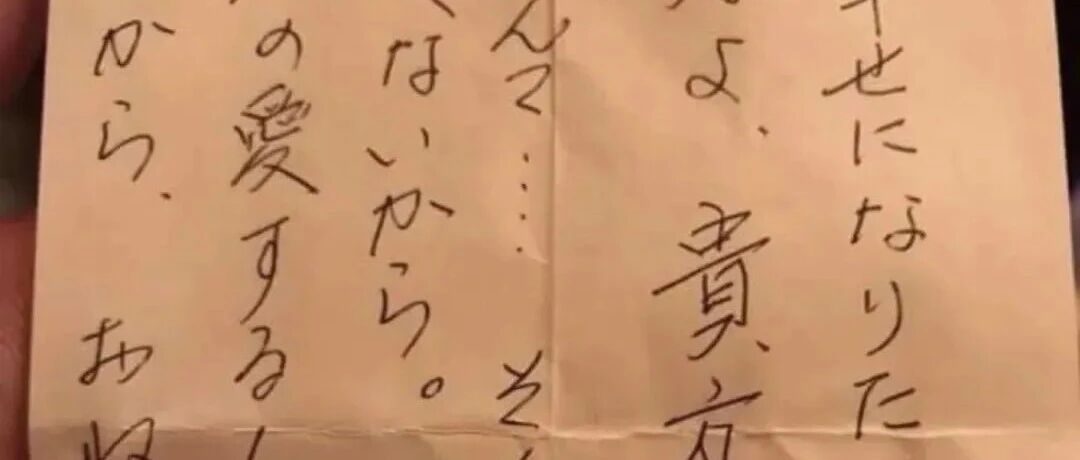 せになりた
よ、貴方
んて……そ
ないから。
の愛する
から、お